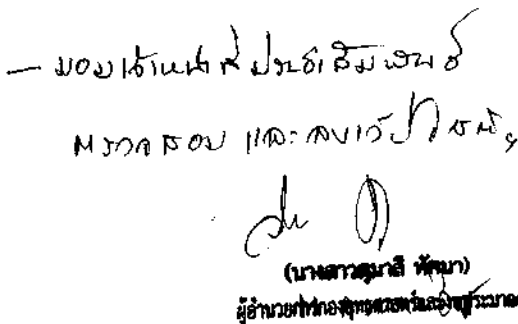 - มอบเจ้าหน้าที่ประชาสัมพันธ์
ตรวจสอบ และลงเว็บไซต์ฯ
(นางสาวสุมาลี ทัศมา)
ผู้อำนวยการกองยุทธศาสตร์และงบประมาณ